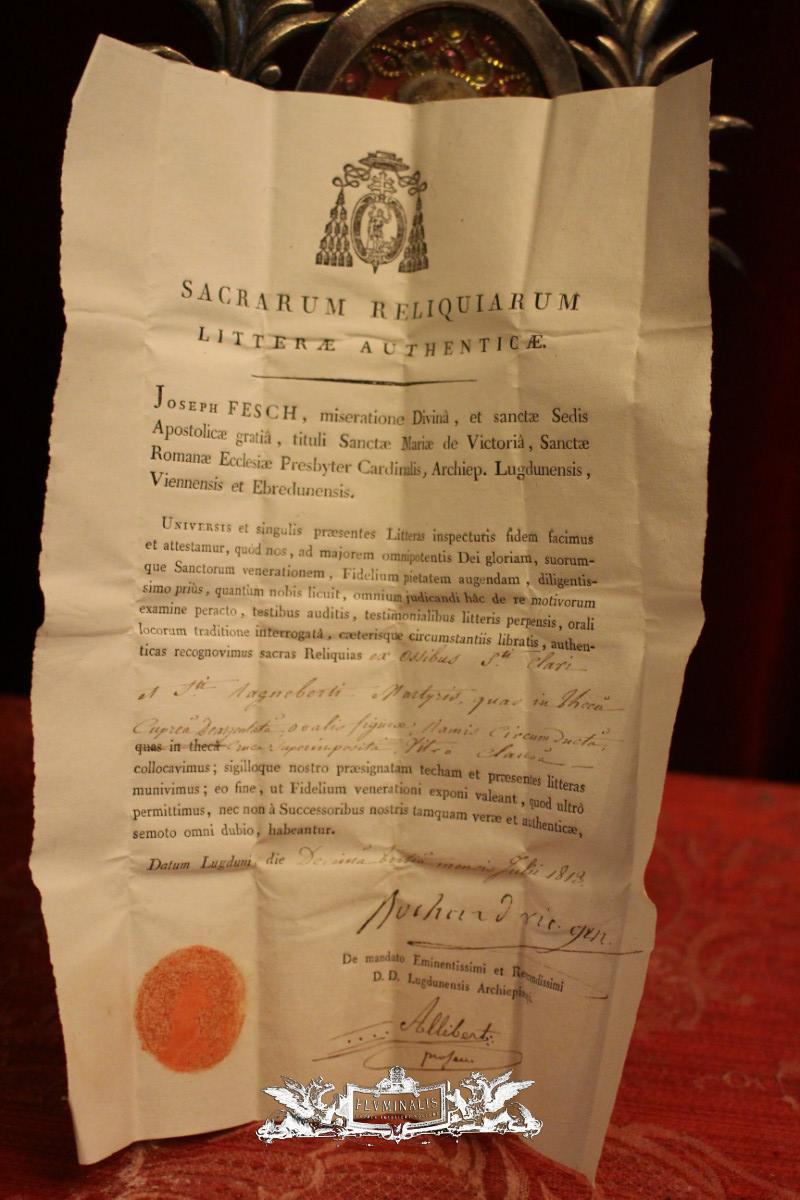 SACRARUM RELIQUIARUM
LITTERÆ AUTHENTICÆ.
JOSEPH FESCH, miseratione Divinâ, et sanctæ Sedis
Apostolicæ gratiâ, tituli Sanctæ Mariæ de Victoriâ, Sanctæ
Romanæ Ecclesiæ Presbyter Cardinalis, Archiep. Lugdunensis,
Viennensis et Ebredunensis.
UNIVERSIS et singulis præsentes Litteras inspecturis fidem facimus
et attestamur, quòd nos, ad majorem omnipotentis Dei gloriam, suorum-
que Sanctorum venerationem, Fidelium pietatem augendam, diligentis-
simo priùs, quantùm nobis licuit, omnium judicandi hâc de re motivorum
examine peracto, testibus auditis, testimonialibus litteris perpensis, orali
locorum traditione interrogatâ, cæterisque circumstantiis libratis, authen-
ticas recognovimus sacras Reliquias ex ossibus Sti. Clari
et Sti Ragneberti Martyris, quas in thecâ
Cupreâ Deargentatâ, ovalis figuræ, Ramis Circumductâ,
quas in thecâ Cruce Superimpositâ, Vitro Clausâ
collocavimus; sigilloque nostro præsignatam techam et præsentes litteras
munivimus; eo fine, ut Fidelium venerationi exponi valeant, quod ultrò
permittimus, nec non à Successoribus nostris tamquam veræ et authenticæ,
semoto omni dubio, habeantur.
Datum Lugduni, die Decimâ tertiâ mensis Julii 1813.
Bochard vic. gen.
De mandato Eminentissimi et Reverendissimi
D. D. Lugdunensis Archiepiscopi
Allibert
FLVMINALIS